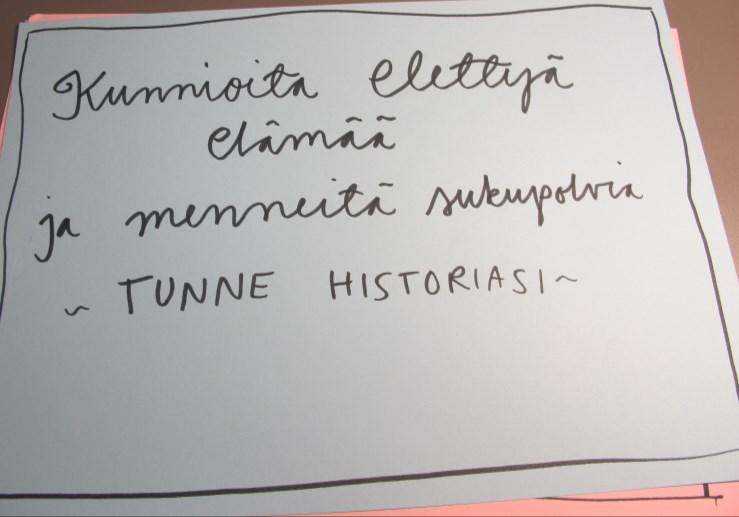 Kunnioita elettyjä
elämää
ja menneitä sukupolvia
~ TUNNE HISTORIASI ~